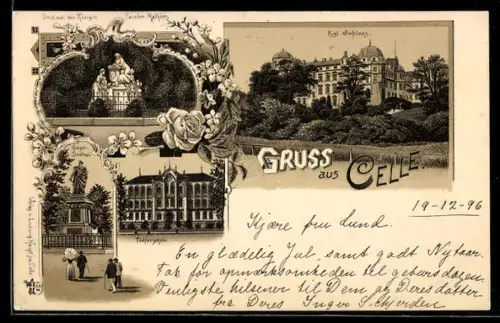 Denkmal der Königin Caroline Mathilde
Kgl. Schloss.
GRUSS
aus CELLE.
Töchterschule
19-12-96
Kjære fru Lund.
En glædelig Jul, samt godt Nytaar.
Tak for opmærksomheden til geburtsdagen.
Venligste hilsener til Dem og Deres datter
fra Deres Inger